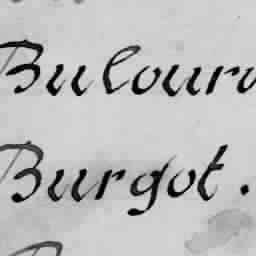 Bulour
Burgot.